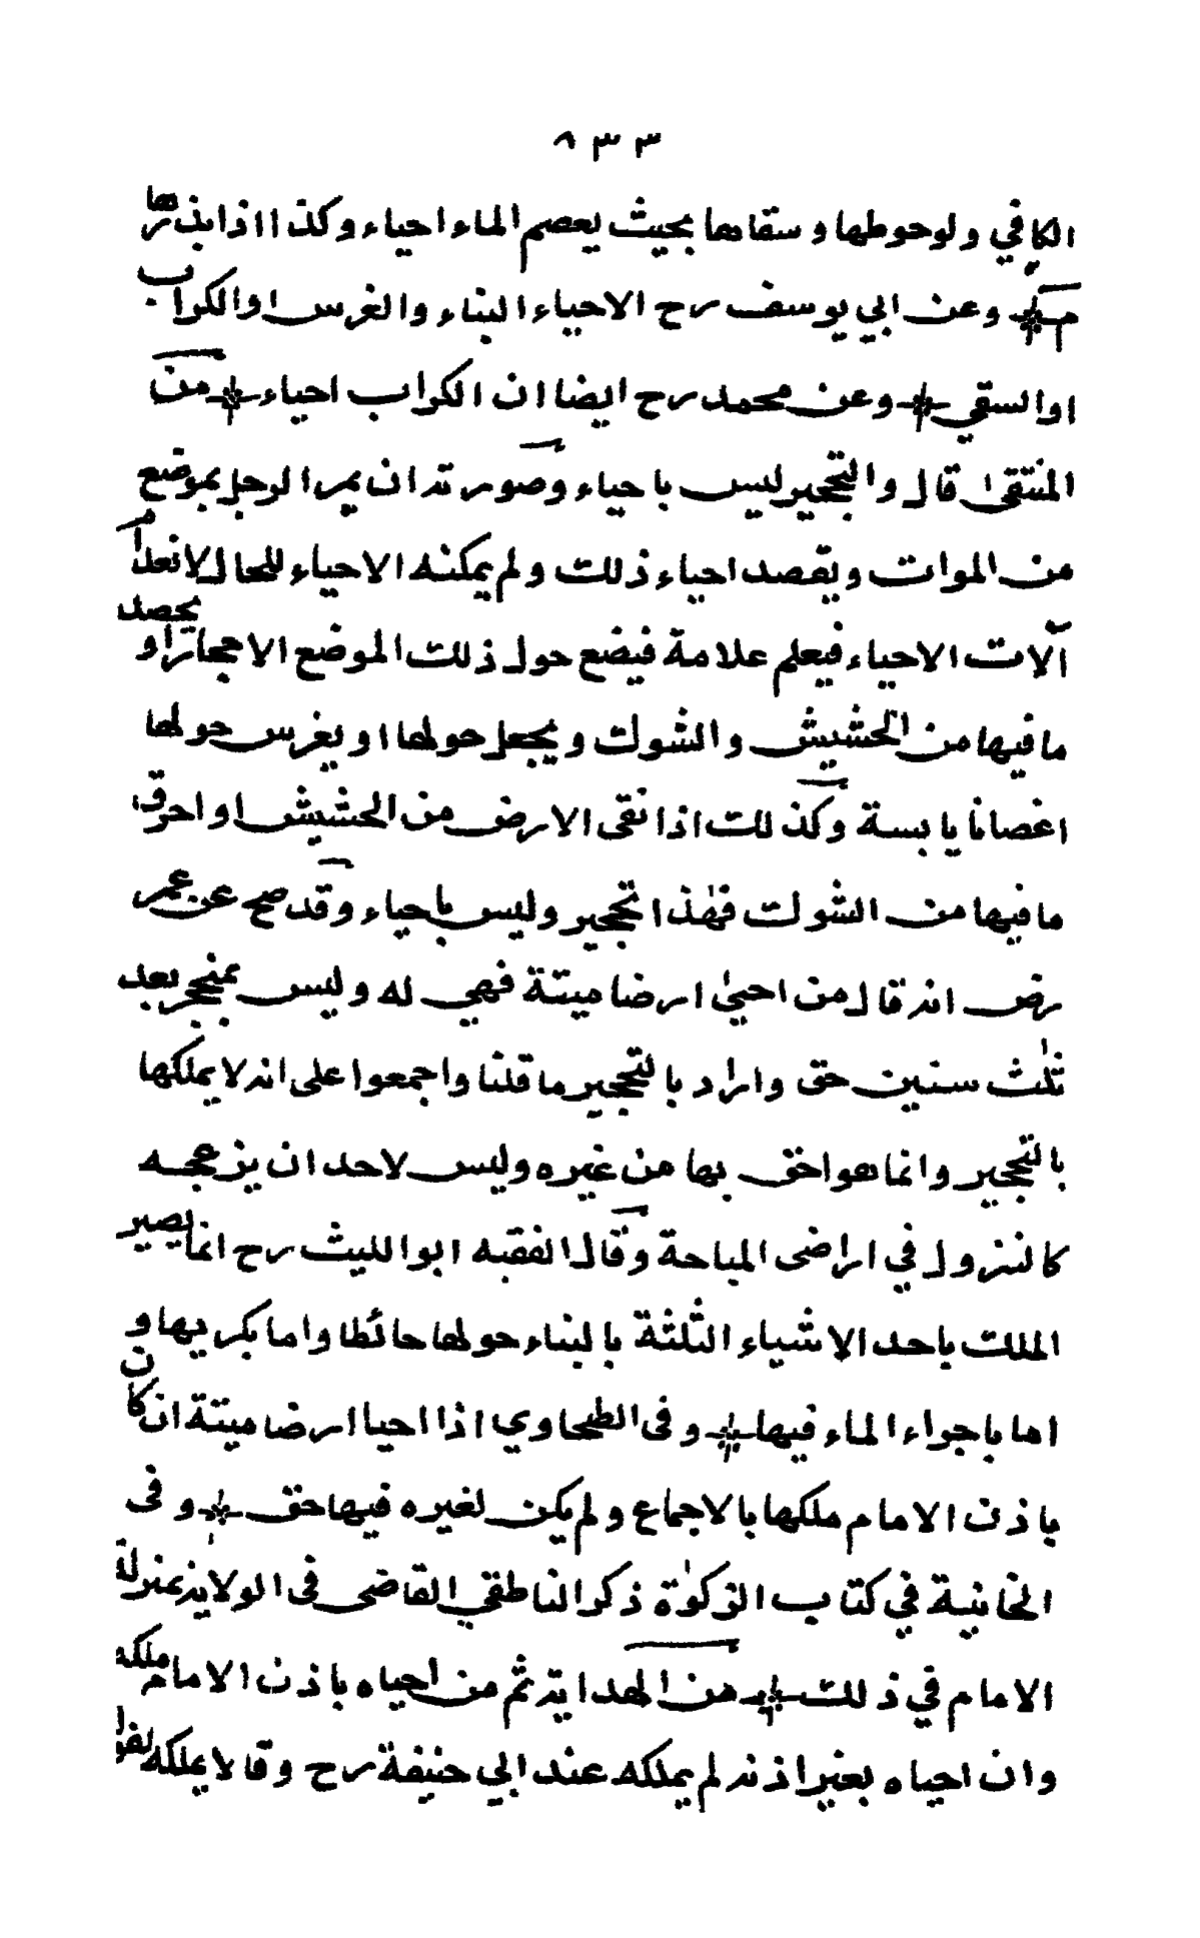 ٨٣٣
الكافي ولوحوطها وسقاها بحيث يعصم الماء احياء وكذا اذا بذرها
وعن ابي يوسف رح الاحياء البناء والغرس او الكراب
او السقي * وعن محمد رح ايضا ان الكراب احياء * من
المنتقى قال والتحجير ليس باحياء وصورته ان يمر الرجل بموضع
من الموات ويقصد احياء ذلك ولم يمكنه الاحياء للحال لانعدام
آلات الاحياء فيعلم علامة فيضع حول ذلك الموضع الاحجار او يحصد
ما فيها من الحشيش والشوك ويجعل حولها او يغرس حولها
اغصانا يابسة وكذلك اذا نقى الارض من الحشيش او احرق
ما فيها من الشوك فهذا تحجير وليس باحياء وقد صح عن عمر
رض انه قال من احيى ارضا ميتة فهي له وليس بمنحجر بعد
ثلث سنين حق واراد بالتحجير ما قلنا واجمعوا على انه لا يملكها
بالتحجير وانما هو احق بها من غيره وليس لاحد ان يزعجه
كالنزول في اراضى المباحة وقال الفقيه ابو الليث رح انما يصير
الملك باحد الاشياء الثلثة بالبناء حولها حائطا واما بكريها و
اما باجراء الماء فيها * وفى الطحاوي اذا احيا ارضا ميتة ان كان
باذن الامام ملكها بالاجماع ولم يكن لغيره فيها حق * وفى
الخانية في كتاب الزكوة ذكر الناطفي القاضى فى الولاية بمنزلة
الامام في ذلك * من الهداية ثم من احياه باذن الامام ملكه
وان احياه بغير اذنه لم يملكه عند ابي حنيفة رح وقالا يملكه لقوله